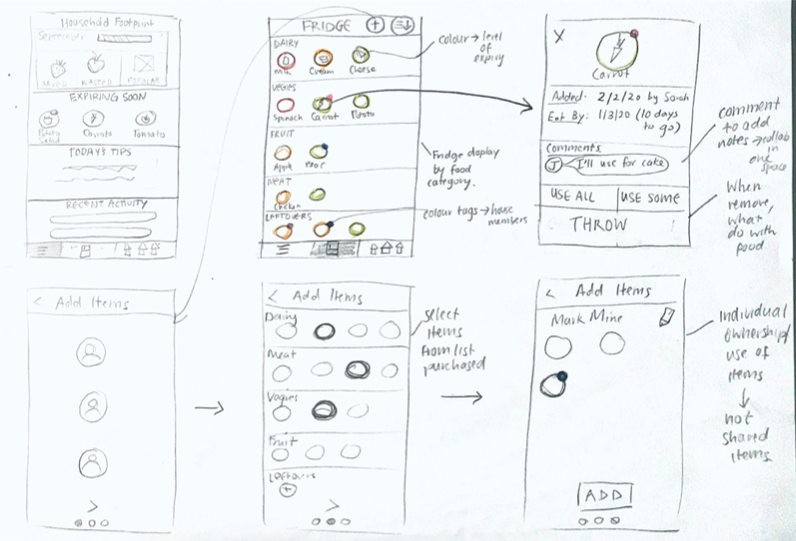 Household Footprint
September
SAVED
WASTED
POPULAR
EXPIRING SOON
Potato Salad
Carrots
Tomato
TODAY'S TIPS
RECENT ACTIVITY
FRIDGE
DAIRY
Milk
Cream
Cheese
VEGIES
Spinach
Carrot
Potato
FRUIT
Apple
Pear
MEAT
Chicken
LEFTOVERS
colour → level
of
expiry
Fridge display
by food
category.
colour tags → house
members
X
Carrot
Added: 2/2/20 by Sarah
Eat By: 1/3/20 (10 days
to go)
Comments
J
I'll use for cake
USE ALL
USE SOME
THROW
comment
to add
notes → collab
in
one
space
When
remove,
what
do with
food
< Add Items
>
< Add Items
Dairy
Meat
Vegies
Fruit
Leftovers
>
select
items
from list
purchased
< Add Items
Mark Mine
ADD
individual
ownership/
use of
items
↓
not
shared
items